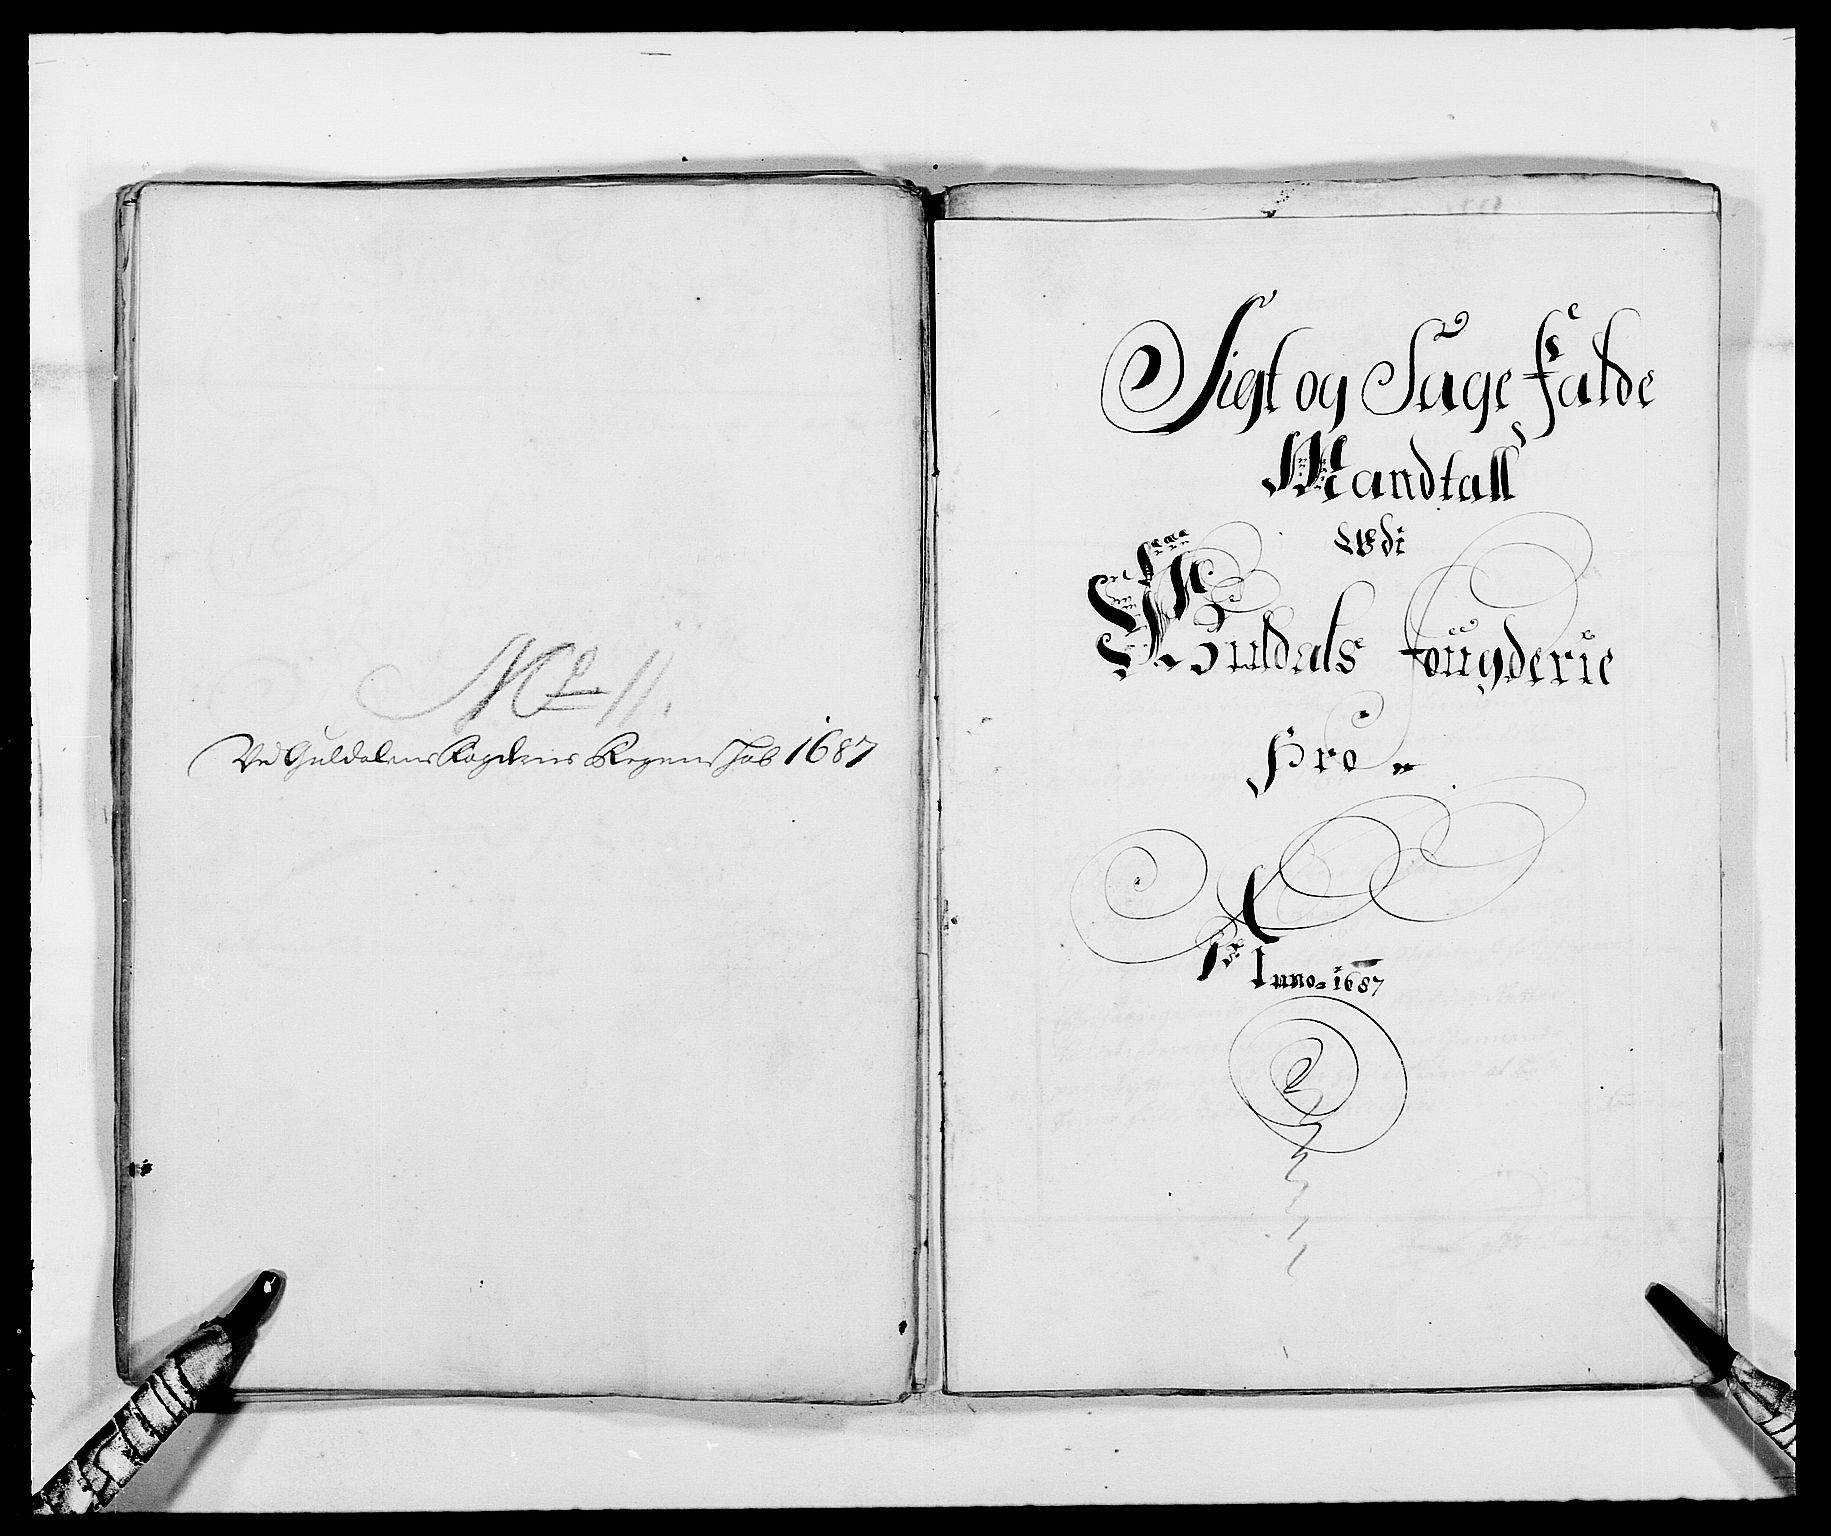 No 11.
Ved Guldalens Fogderies Regenskab 1687
Sigt og Sage Falds
Mandtall
Udi
Guldals Fougderie
Pro
Anno 1687